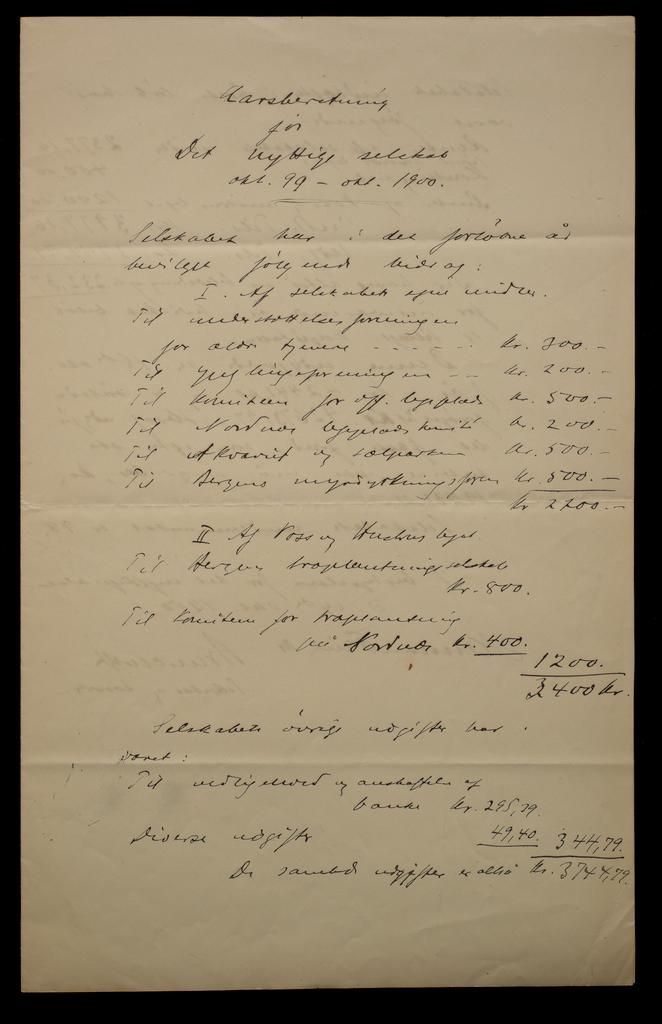 Aarsberetning
for
Det nyttige selskab
okt. 99 – okt. 1900.
Selskabet har i det forløbne år
bevilget følgende bidrag:
I. Af selskabets egne midler.
Til understøttelsesforeningen
for ældre tjenere - - - - - kr. 300.-
Til -- kr. 200.-
Til komiteen for off. legeplads kr. 500.-
Til Nordnæs legeplads komité kr. 200.-
Til Akvariet og sælparken kr. 500.-
Til Bergens kr. 500.-
kr 2200.-
II Af Voss og legat.
Til Bergens træplantningsselskab
kr. 800.
Til komiteen for træplantning
på Nordnæs kr. 400.
1200.
3400 kr.
Selskabets övrige udgifter har
været:
Til vedligehold og anskaffelse af
bænke kr. 295,39.
Diverse udgifter 49,40. 344,79.
De samlede udgifter er altså kr. 3744,79.